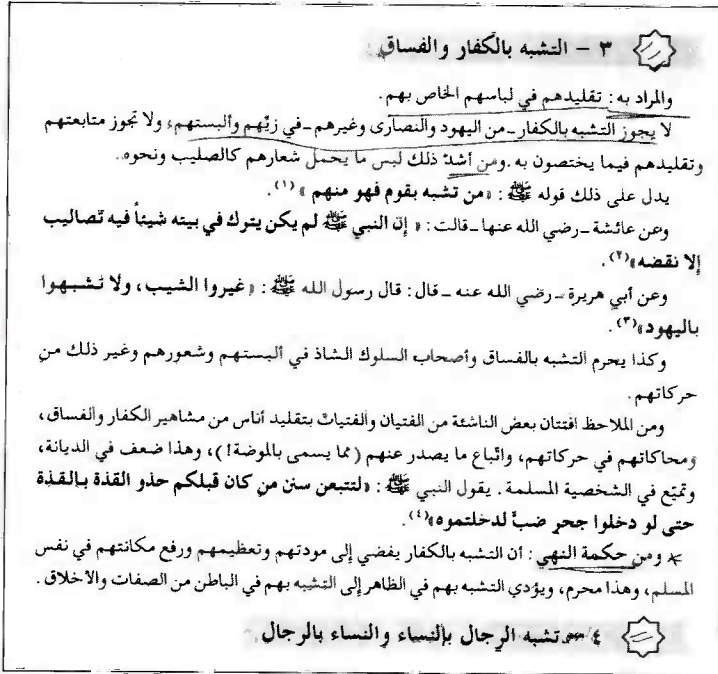 ٣ - التشبه بالكفار والفساق :
والمراد به : تقليدهم في لباسهم الخاص بهم .
لا يجوز التشبه بالكفار - من اليهود والنصارى وغيرهم - في زيهم وألبستهم، ولا تجوز متابعتهم
وتقليدهم فيما يختصون به . ومن أشد ذلك لبس ما يحمل شعارهم كالصليب ونحوه .
يدل على ذلك قوله ﷺ : «من تشبه بقوم فهو منهم» (١) .
وعن عائشة - رضي الله عنها - قالت : « إن النبي ﷺ لم يكن يترك في بيته شيئاً فيه تصاليب
إلا نقضه» (٢) .
وعن أبي هريرة - رضي الله عنه - قال : قال رسول الله ﷺ : «غيروا الشيب ، ولا تشبهوا
باليهود» (٣) .
وكذا يحرم التشبه بالفساق وأصحاب السلوك الشاذ في ألبستهم وشعورهم وغير ذلك من
حركاتهم .
ومن الملاحظ افتتان بعض الناشئة من الفتيان والفتيات بتقليد أناس من مشاهير الكفار والفساق ،
ومحاكاتهم في حركاتهم، واتباع ما يصدر عنهم (مما يسمى بالموضة ! ) ، وهذا ضعف في الديانة ،
وتميّع في الشخصية المسلمة . يقول النبي ﷺ : «لتتبعن سنن من كان قبلكم حذو القذة بالقذة
حتى لو دخلوا جحر ضبّ لدخلتموه» (٤) .
ومن حكمة النهي : أن التشبه بالكفار يفضي إلى مودتهم وتعظيمهم ورفع مكانتهم في نفس
المسلم ، وهذا محرم ، ويؤدي التشبه بهم في الظاهر إلى التشبه بهم في الباطن من الصفات والأخلاق .
٤ - تشبه الرجال بالنساء والنساء بالرجال